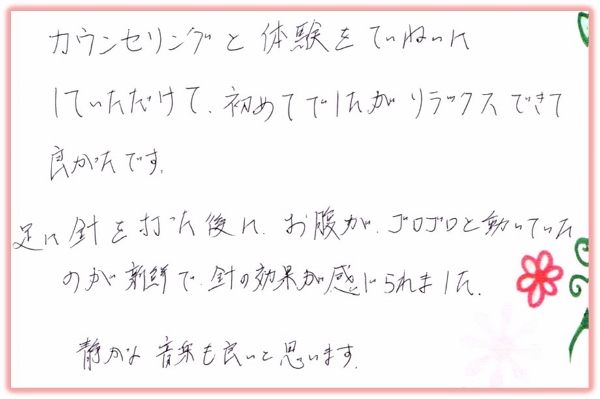 カウンセリングと体験をていねいに
していただけて、初めてでしたがリラックスできて
良かったです。
足に針を打った後に、お腹が、ゴロゴロと動いていた
のが新鮮で、針の効果が感じられました。
静かな音楽も良いと思います。